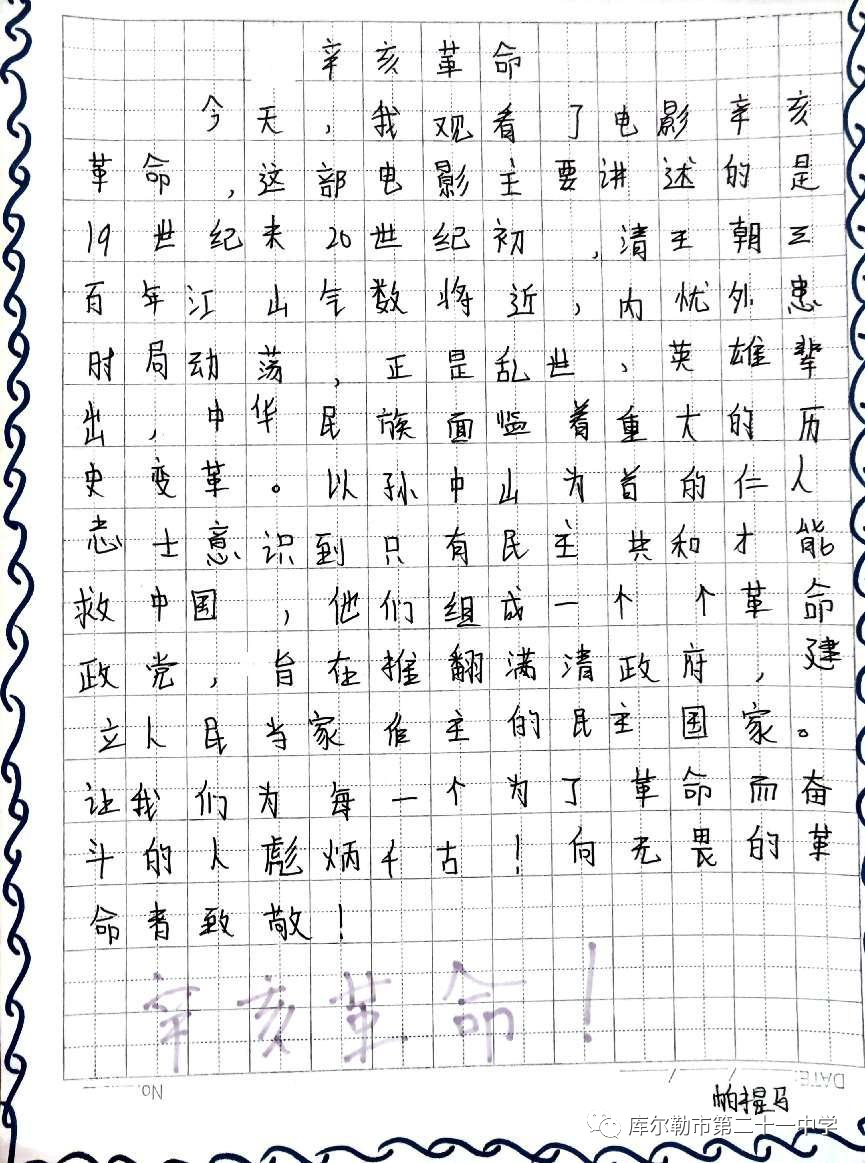 辛亥革命
今天，我观看了电影辛亥
革命，这部电影主要讲述的是
19世纪末20世纪初，清王朝三
百年江山气数将近，内忧外患
时局动荡，正是乱世，英雄辈
出，中华民族面监着重大的历
史变革。以孙中山为首的仁人
志士意识到只有民主共和才能
救中国，他们组成一个个革命
政党，旨在推翻满清政府，建
立人民当家作主的民主国家。
让我们为每一个为了革命而奋
斗的人彪炳千古！向无畏的革
命者致敬！
辛亥革命！
No:
DATE: / /
帕提马
库尔勒市第二十一中学